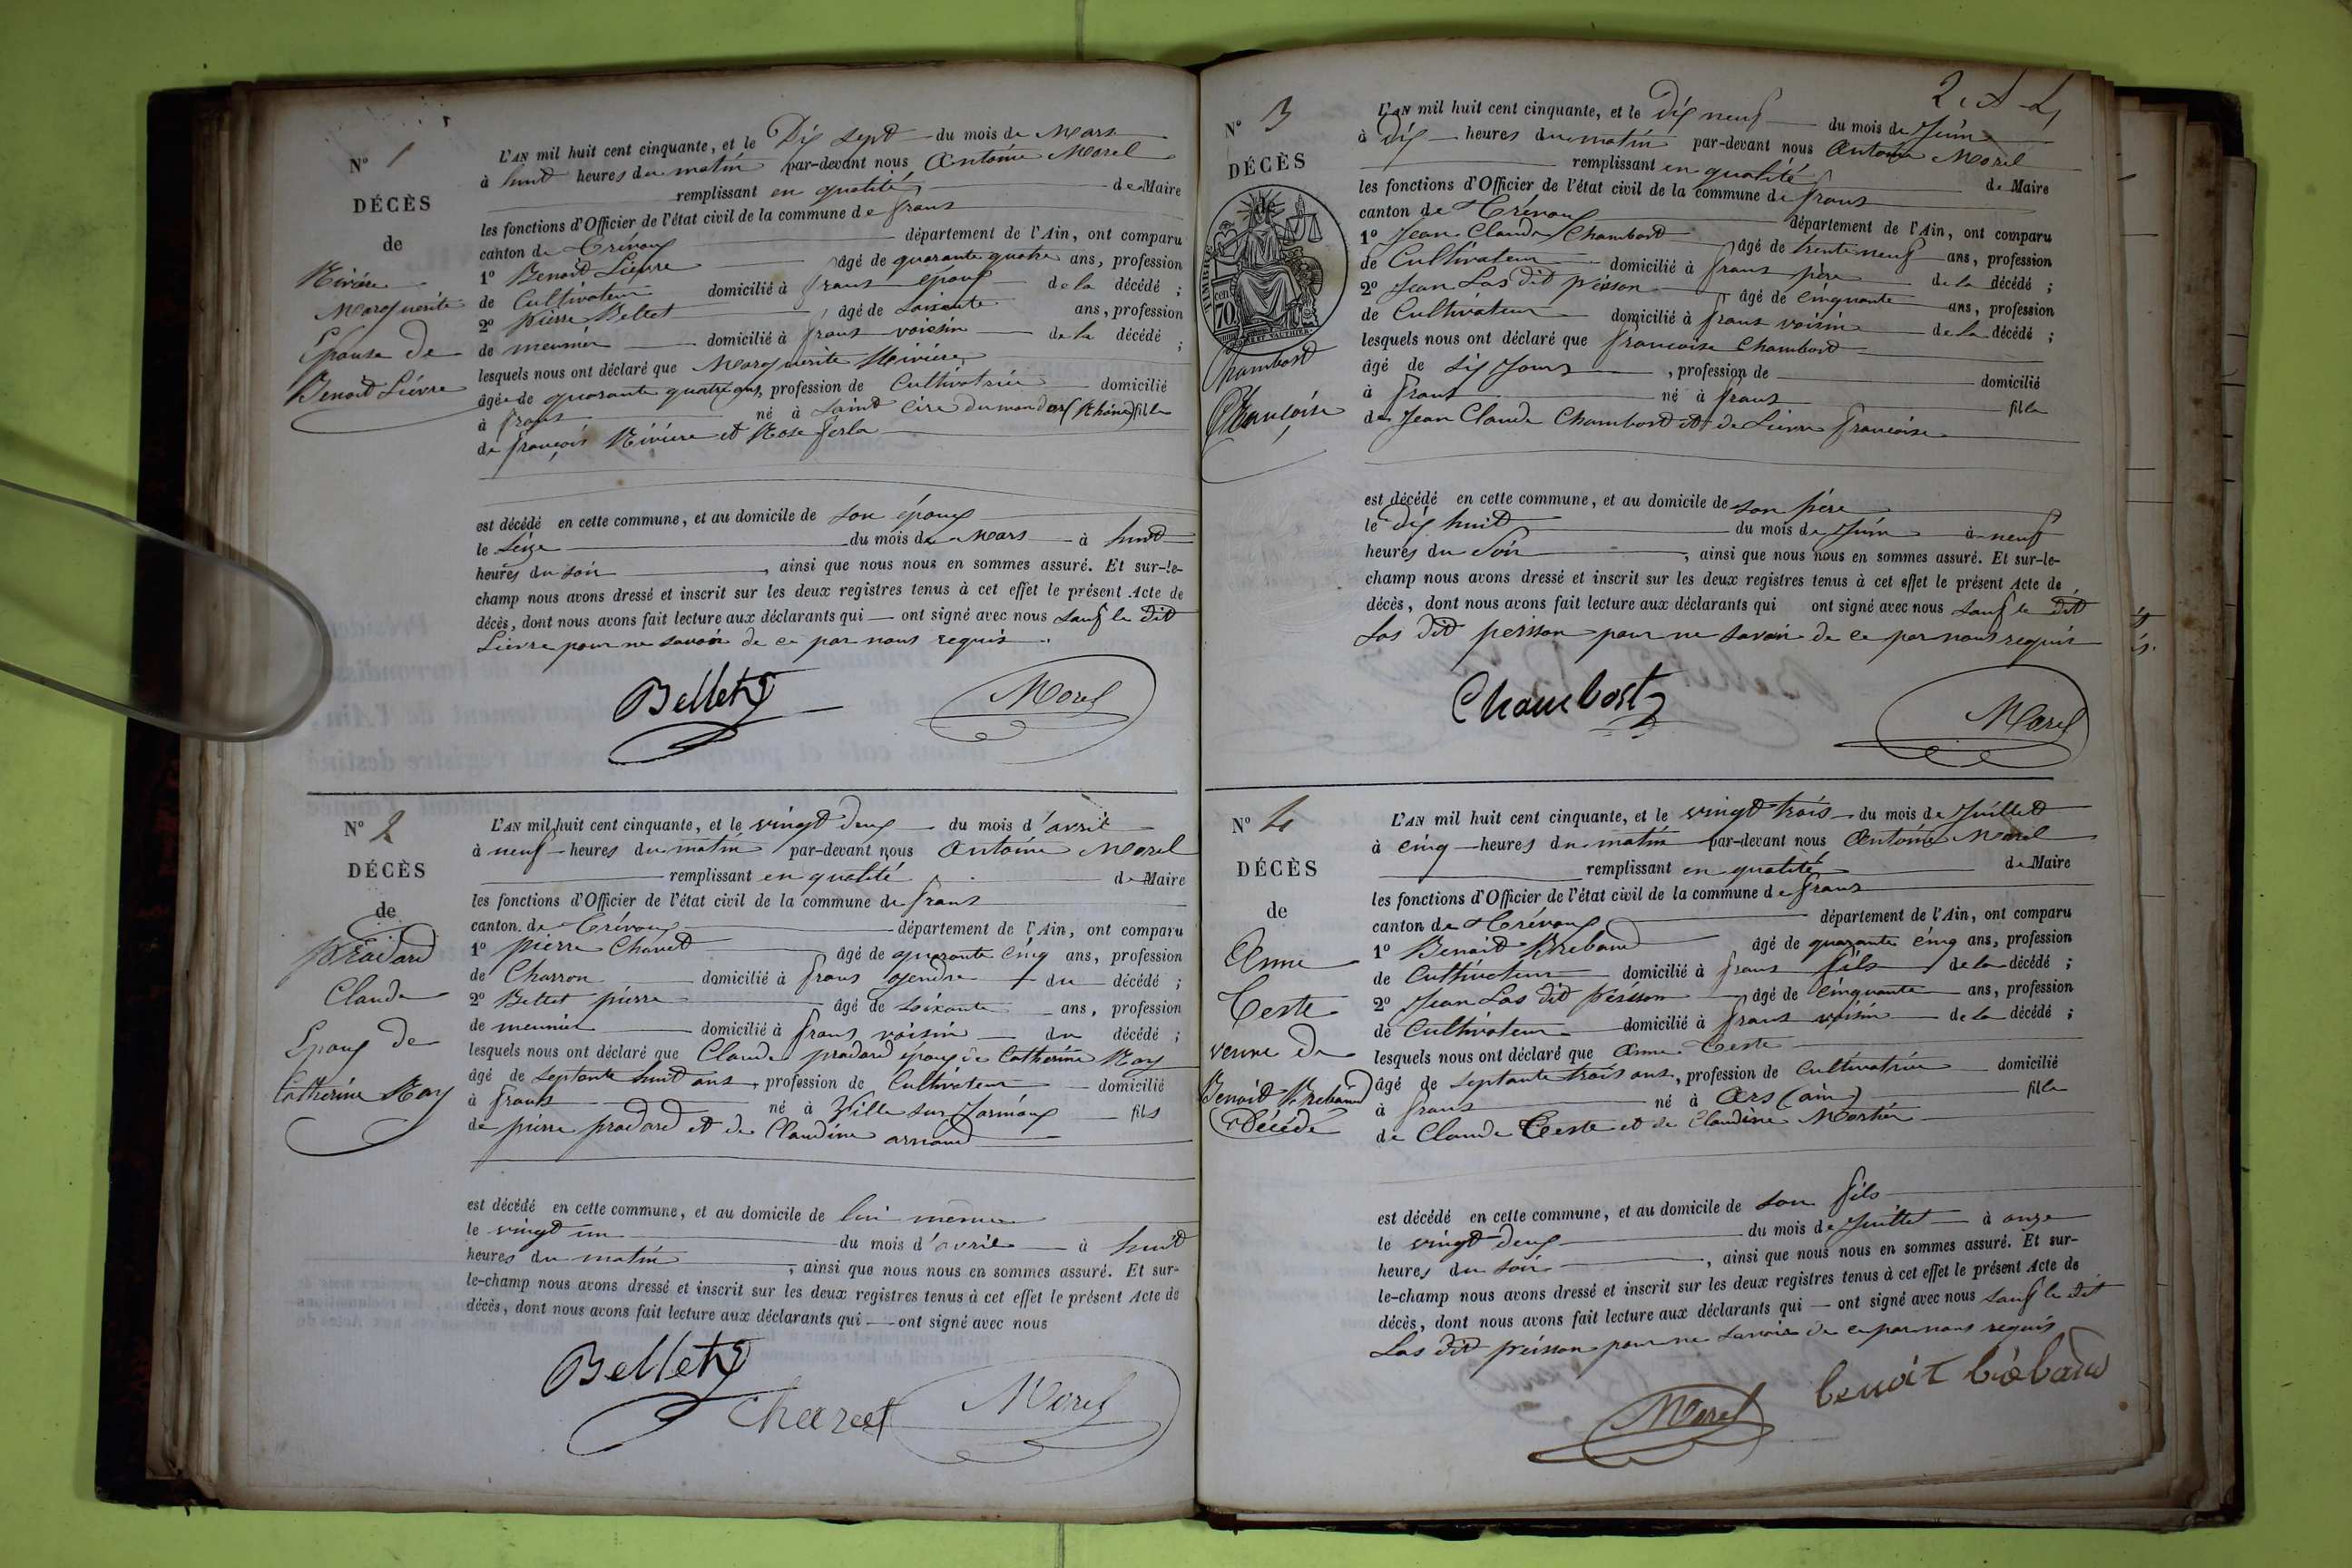 N° 1
DÉCÈS
de
Rivière
Marguerite
Epouse de
Benoit Lièvre
L'AN mil huit cent cinquante, et le Dix sept du mois de Mars
à huit heures du matin par-devant nous Antoine Morel
remplissant en qualité de Maire
les fonctions d'Officier de l'état civil de la commune de frans
canton de Trévoux département de l'Ain, ont comparu
1° Benoit Lièvre âgé de quarante quatre ans, profession
de Cultivateur domicilié à frans époux de la décédé ;
2° pierre Bellet âgé de soixante ans, profession
de meunier domicilié à frans voisin de la décédé ;
lesquels nous ont déclaré que Marguerite Rivière
âgée de quarante quatre ans, profession de Cultivatrice domicilié
à frans né à Saint Cire du mondor (Rhône) fille
de françois Rivière et Rose ferla
est décédé en cette commune, et au domicile de son époux
le Seize du mois de Mars à huit
heures du soir , ainsi que nous nous en sommes assuré. Et sur-le-
champ nous avons dressé et inscrit sur les deux registres tenus à cet effet le présent Acte de
décès, dont nous avons fait lecture aux déclarants qui — ont signé avec nous sauf le dit
Lievre pour ne savoir de ce par nous requis
Bellet Morel
N° 2
DÉCÈS
de
pradard
Claude
Epoux de
Catherine Ray
L'AN mil huit cent cinquante, et le vingt deux du mois d'avril
à neuf heures du matin par-devant nous Antoine Morel
remplissant en qualité de Maire
les fonctions d'Officier de l'état civil de la commune de frans
canton de Trévoux département de l'Ain, ont comparu
1° pierre Chavet âgé de quarante cinq ans, profession
de Charron domicilié à frans gendre du décédé ;
2° Bellet pierre âgé de soixante ans, profession
de meunier domicilié à frans voisin du décédé ;
lesquels nous ont déclaré que Claude pradard époux de Catherine Ray
âgé de septante huit ans, profession de Cultivateur domicilié
à frans né à Ville sur Jarnioux fils
de pierre pradard et de Claudine arnaud
est décédé en cette commune, et au domicile de lui même
le vingt un du mois d'avril à huit
heures du matin , ainsi que nous nous en sommes assuré. Et sur-
le-champ nous avons dressé et inscrit sur les deux registres tenus à cet effet le présent Acte de
décès, dont nous avons fait lecture aux déclarants qui — ont signé avec nous
Bellet
Morel
2
N° 3
DÉCÈS
de
TIMBRE
70
Chambost
françoise
L'AN mil huit cent cinquante, et le Dix neuf du mois de Juin
à dix heures du matin par-devant nous Antoine Morel
remplissant en qualité de Maire
les fonctions d'Officier de l'état civil de la commune de frans
canton de Trévoux département de l'Ain, ont comparu
1° Jean Claude Chambost âgé de trente neuf ans, profession
de Cultivateur domicilié à frans père de la décédé ;
2° Jean Las dit périsson âgé de cinquante ans, profession
de Cultivateur domicilié à frans voisin de la décédé ;
lesquels nous ont déclaré que françoise Chambost
âgé de Six Jours , profession de domicilié
à frans né à frans fille
de Jean Claude Chambost et de Lievre françoise
est décédé en cette commune, et au domicile de son père
le dix huit du mois de Juin à neuf
heures du Soir , ainsi que nous nous en sommes assuré. Et sur-le-
champ nous avons dressé et inscrit sur les deux registres tenus à cet effet le présent Acte de
décès, dont nous avons fait lecture aux déclarants qui ont signé avec nous sauf le dit
Las dit perisson pour ne savoir de ce par nous requis
Chambost Morel
N° 4
DÉCÈS
de
Anne
Teste
veuve de
Benoit Brebaud
Décédé
L'AN mil huit cent cinquante, et le vingt trois du mois de Juillet
à cinq heures du matin par-devant nous Antoine Morel
remplissant en qualité de Maire
les fonctions d'Officier de l'état civil de la commune de frans
canton de Trévoux département de l'Ain, ont comparu
1° Benoit Brebaud âgé de quarante cinq ans, profession
de Cultivateur domicilié à frans fils de la décédé ;
2° Jean Las dit périsson âgé de cinquante ans, profession
de Cultivateur domicilié à frans voisin de la décédé ;
lesquels nous ont déclaré que Anne Teste
âgé de septante trois ans, profession de Cultivatrice domicilié
à frans né à Ars (ain) fille
de Claude Teste et de Claudine Martin
est décédé en cette commune, et au domicile de son fils
le vingt deux du mois de Juillet à onze
heures du soir , ainsi que nous nous en sommes assuré. Et sur-
le-champ nous avons dressé et inscrit sur les deux registres tenus à cet effet le présent Acte de
décès, dont nous avons fait lecture aux déclarants qui — ont signé avec nous sauf le dit
Las dit périsson pour ne savoir de ce par nous requis
Morel benoit